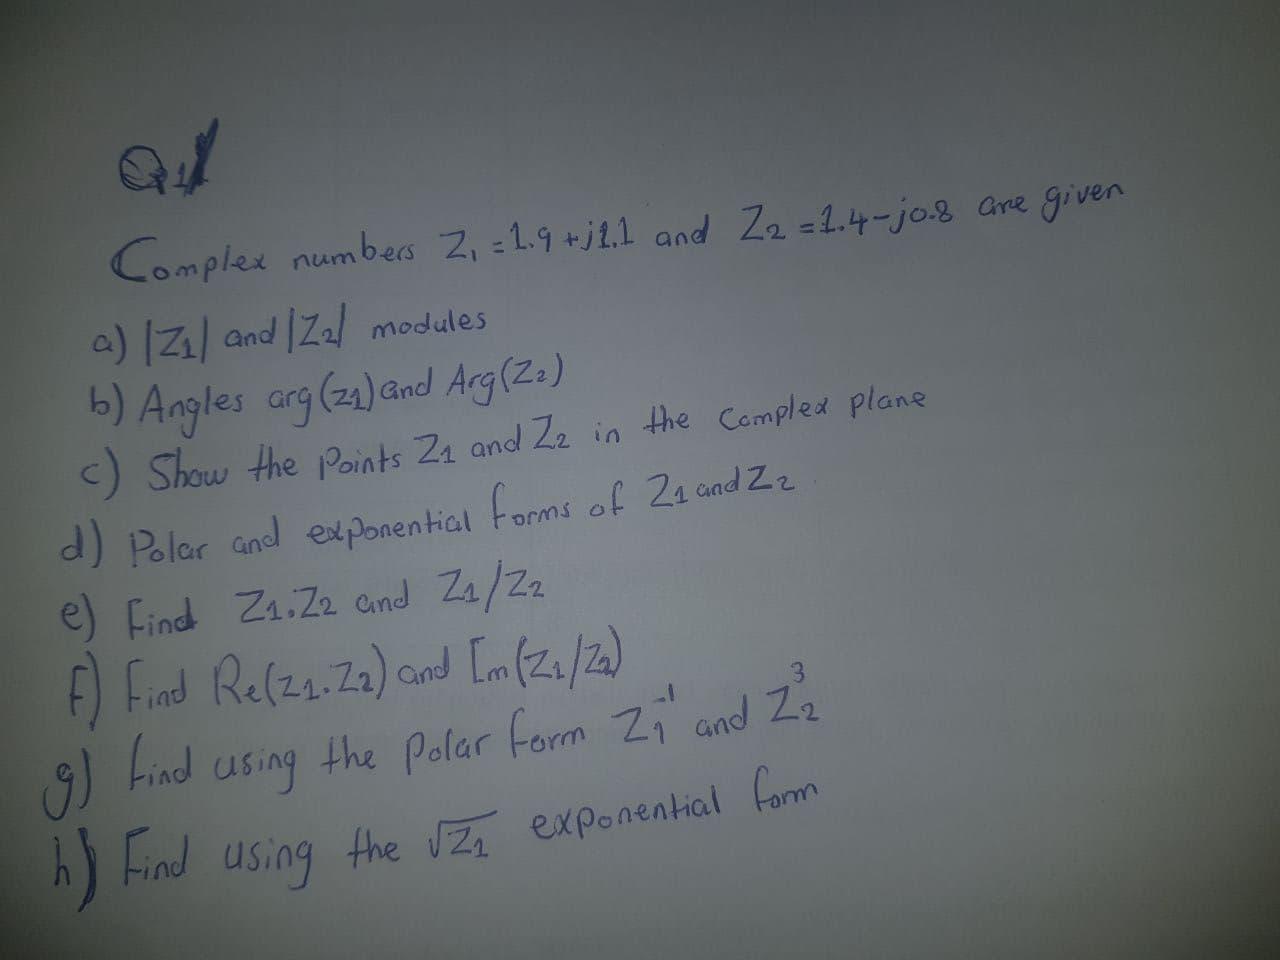 Q1
Complex numbers Z₁ = 1.9 + j1.1 and Z₂ = 1.4 - j0.8 are given
a) |Z₁| and |Z₂| modules
b) Angles arg(z₁) and Arg(Z₂)
c) Show the Points Z₁ and Z₂ in the Complex plane
d) Polar and exponential forms of Z₁ and Z₂
e) Find Z₁.Z₂ and Z₁/Z₂
F) Find Re(Z₁.Z₂) and Im(Z₁/Z₂)
g) find using the Polar form Z₁⁻¹ and Z₂³
h) Find using the √Z₁ exponential form